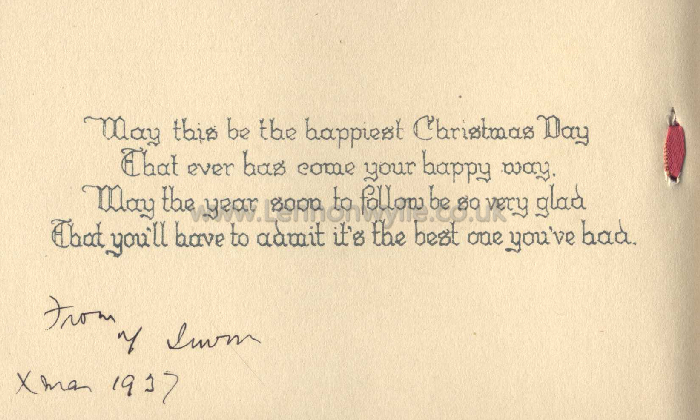 May this be the happiest Christmas Day
That ever has come your happy way.
May the year soon to follow be so very glad
www.Lennonwylie.co.uk
That you'll have to admit it's the best one you've had.
From
Xmas 1937